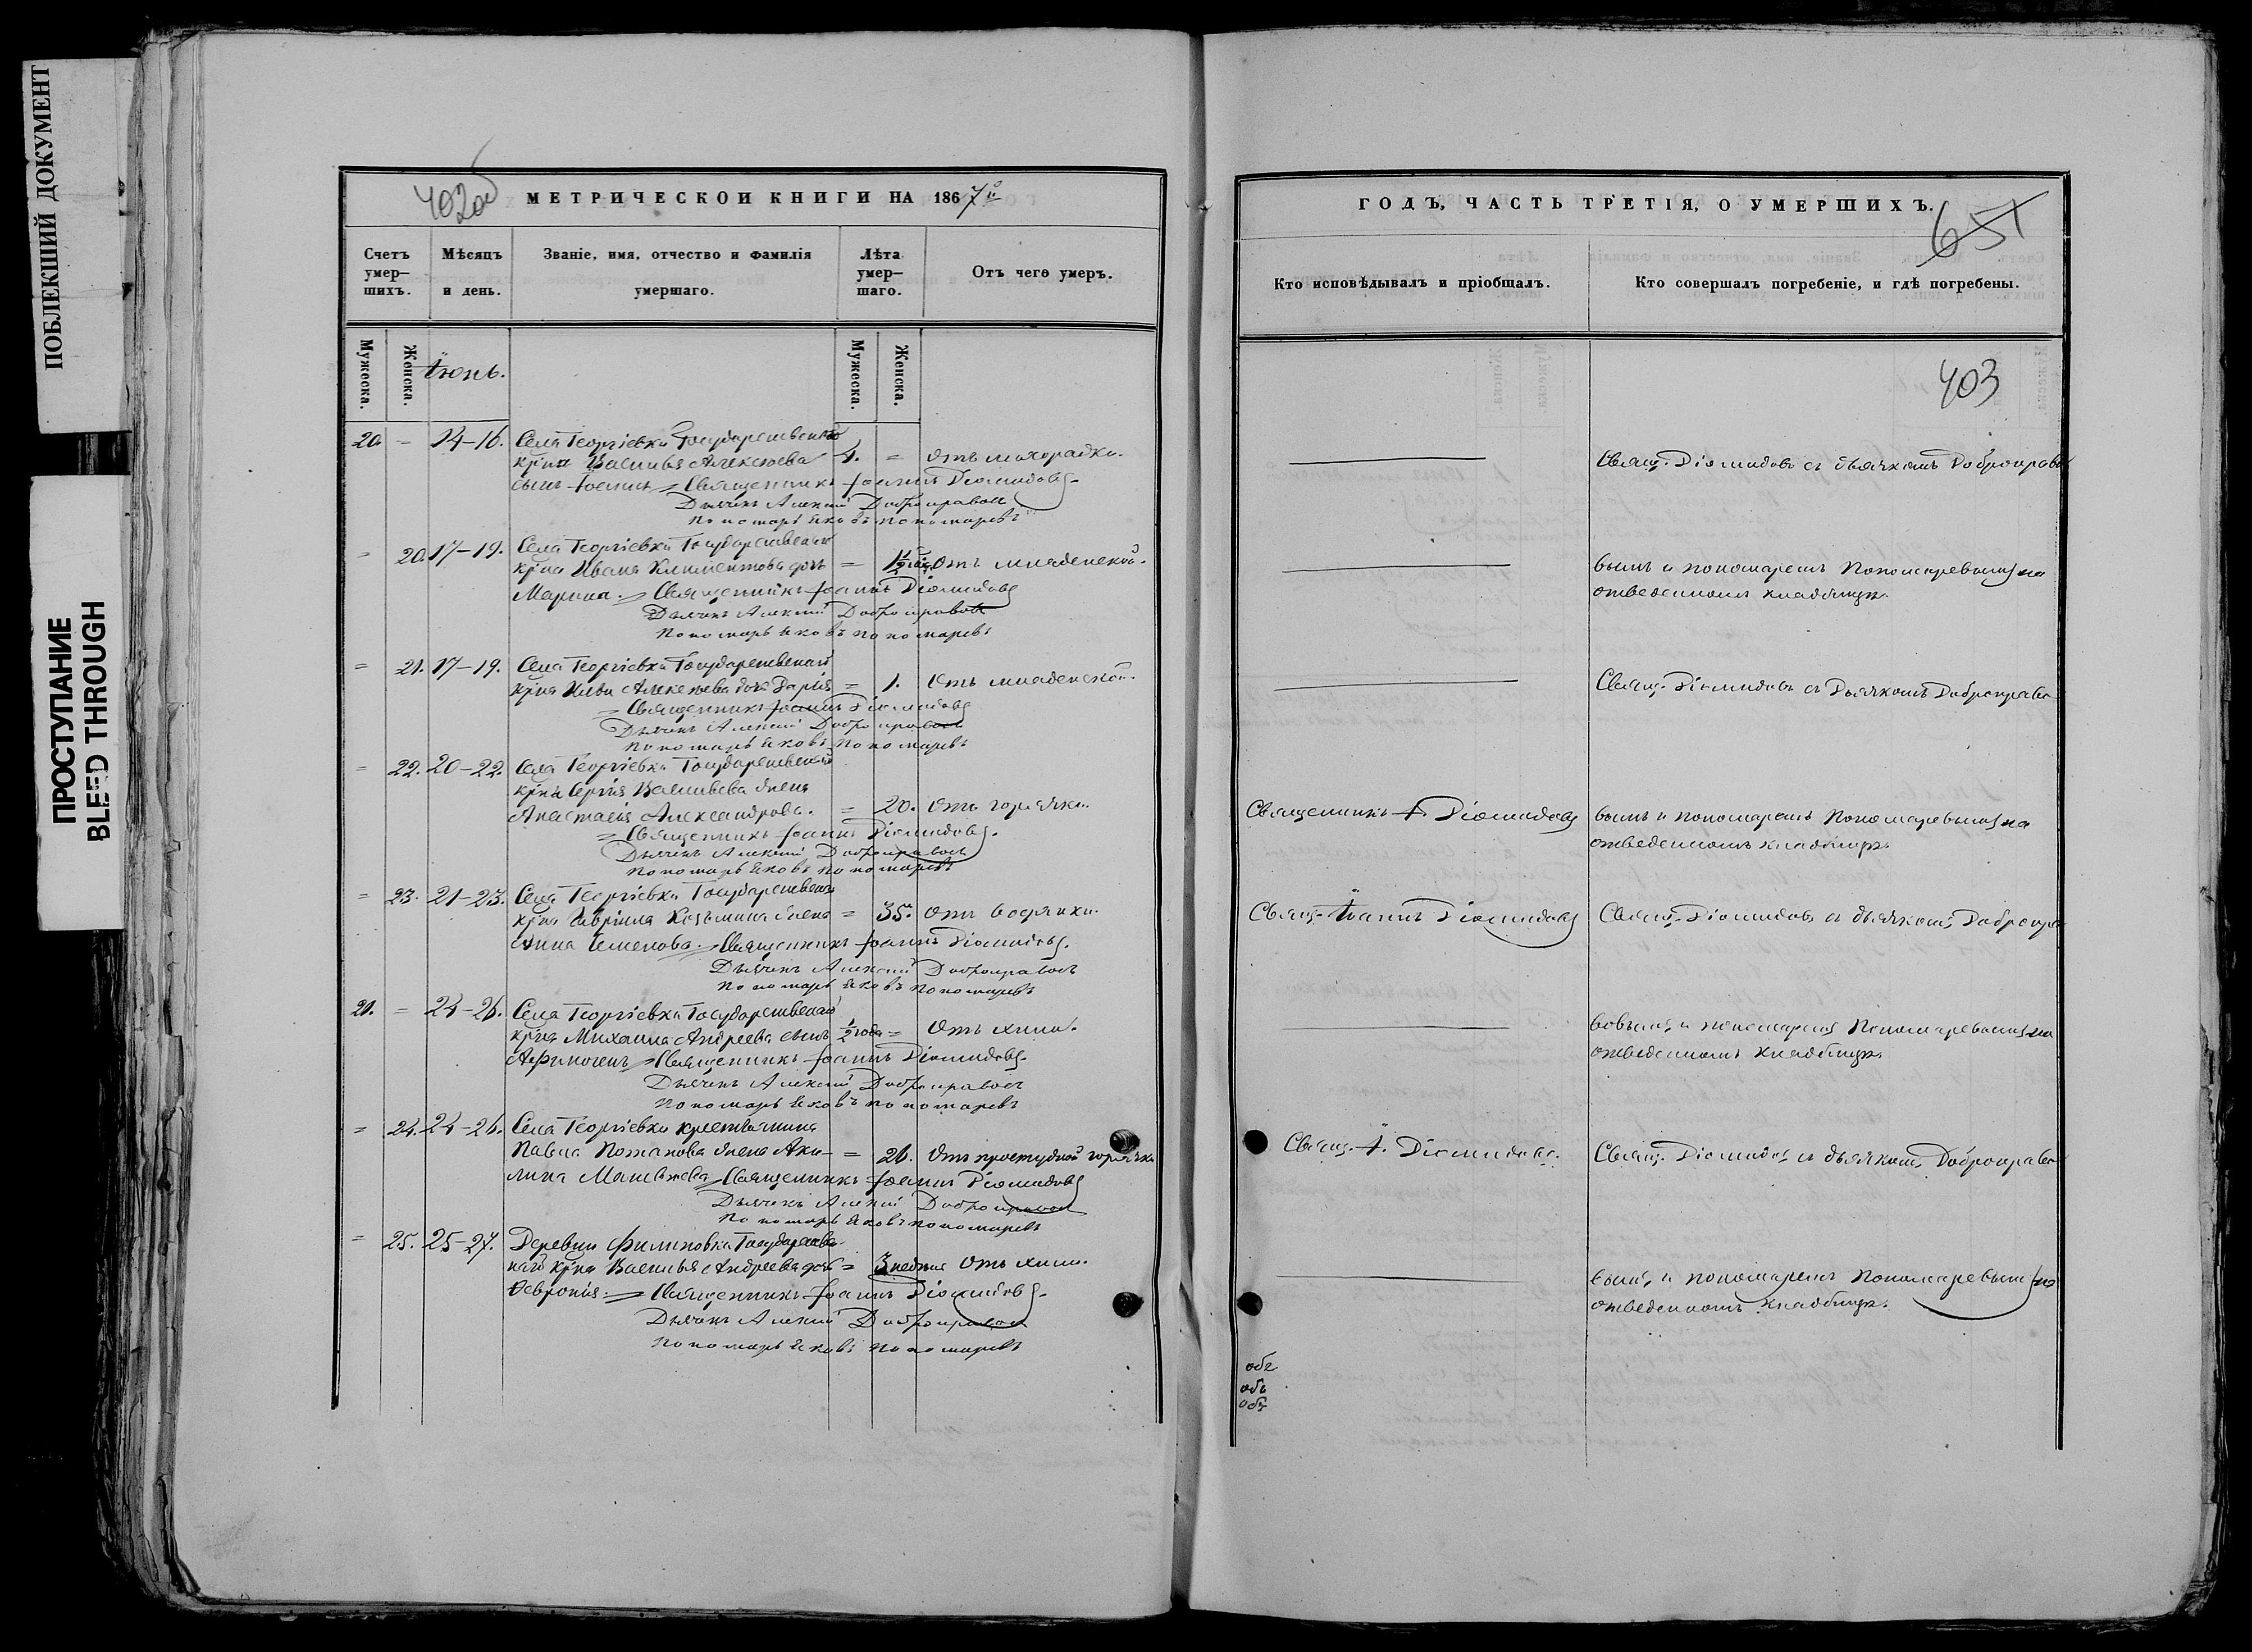 ПОБЛЕКШИЙ ДОКУМЕНТ
ПРОСТУПАНИЕ
BLEED THROUGH
402об
МЕТРИЧЕСКОЙ КНИГИ НА 1867й
Счетъ умер—шихъ.
Мѣсяцъ и день.
Званіе, имя, отчество и фамилія умершаго.
Лѣта умер—шаго.
Отъ чего умеръ.
Мужеска.
Женска.
Іюнь.
Мужеска.
Женска.
20. — 14-16. Села Георгіевки Государственнаго
крна Василья Алексѣева = отъ лихорадки.
сынъ Іоаннъ = Священникъ Іоаннъ Діомидовъ.
Дьячекъ Алексій Добронравовъ
Пономарь Яковъ Пономаревъ
= 20. 17-19. Села Георгіевки Государственнаго
крна Ивана Климентова дочь = 1½ года Отъ младенской.
Марина. = Священникъ Іоаннъ Діомидовъ
Дьячекъ Алексій Добронравовъ
Пономарь Яковъ Пономаревъ
= 21. 17-19. Села Георгіевки Государственнаго
крна Ильи Алексѣева дочь Дарія = 1. Отъ младенской.
= Священникъ Іоаннъ Діомидовъ
Дьячекъ Алексій Добронравовъ
Пономарь Яковъ Пономаревъ
= 22. 20-22. Села Георгіевки Государственнаго
крна Сергія Васильева жена
Анастасія Александрова. = 20. Отъ горячки.
= Священникъ Іоаннъ Діомидовъ.
Дьячекъ Алексій Добронравовъ
Пономарь Яковъ Пономаревъ
= 23. 21-23. Села Георгіевки Государственнаго
крна Гавріила Козьмина жена = 35. отъ водянки.
Анна Семенова. = Священникъ Іоаннъ Діомидовъ.
Дьячекъ Алексій Добронравовъ
Пономарь Яковъ Пономаревъ
21. = 24-26. Села Георгіевки Государственнаго
крна Михаила Андреева сынъ ½ года = Отъ хили.
Афиногенъ = Священникъ Іоаннъ Діомидовъ.
Дьячекъ Алексій Добронравовъ
Пономарь Яковъ Пономаревъ
= 24. 24-26. Села Георгіевки крестьянина
Павла Потапова жена Аки- = 26. Отъ простудной горячки
лина Матвѣева = Священникъ Іоаннъ Діомидовъ
Дьячекъ Алексій Добронравовъ
Пономарь Яковъ Пономаревъ
= 25. 25-27. Деревни Филиповки Государствен-
наго крна Василья Андреева дочь = 3 недѣли Отъ хили.
Февронія. = Священникъ Іоаннъ Діомидовъ.
Дьячекъ Алексій Добронравовъ
Пономарь Яковъ Пономаревъ
ГОДЪ, ЧАСТЬ ТРЕТІЯ, О УМЕРШИХЪ.
651
Кто исповѣдывалъ и пріобщалъ.
Кто совершалъ погребеніе, и гдѣ погребены.
403
Свящ. Діомидовъ съ дьячкомъ Добронраво
вымъ и пономаремъ Пономаревымъ на
отведенномъ кладбищѣ.
Свящ. Діомидовъ съ Дьячкомъ Добронраво
Священникъ І. Діомидовъ
вымъ и пономаремъ Пономаревымъ на
отведенномъ кладбищѣ.
Свящ. Іоаннъ Діомидовъ
Свящ. Діомидовъ съ дьячкомъ Добронра
вовымъ и пономаремъ Пономаревымъ на
отведенномъ кладбищѣ.
Свящ. І. Діомидовъ.
Свящ. Діомидовъ съ дьячкомъ Добронраво
вымъ и пономаремъ Пономаревымъ на
отведенномъ кладбищѣ.